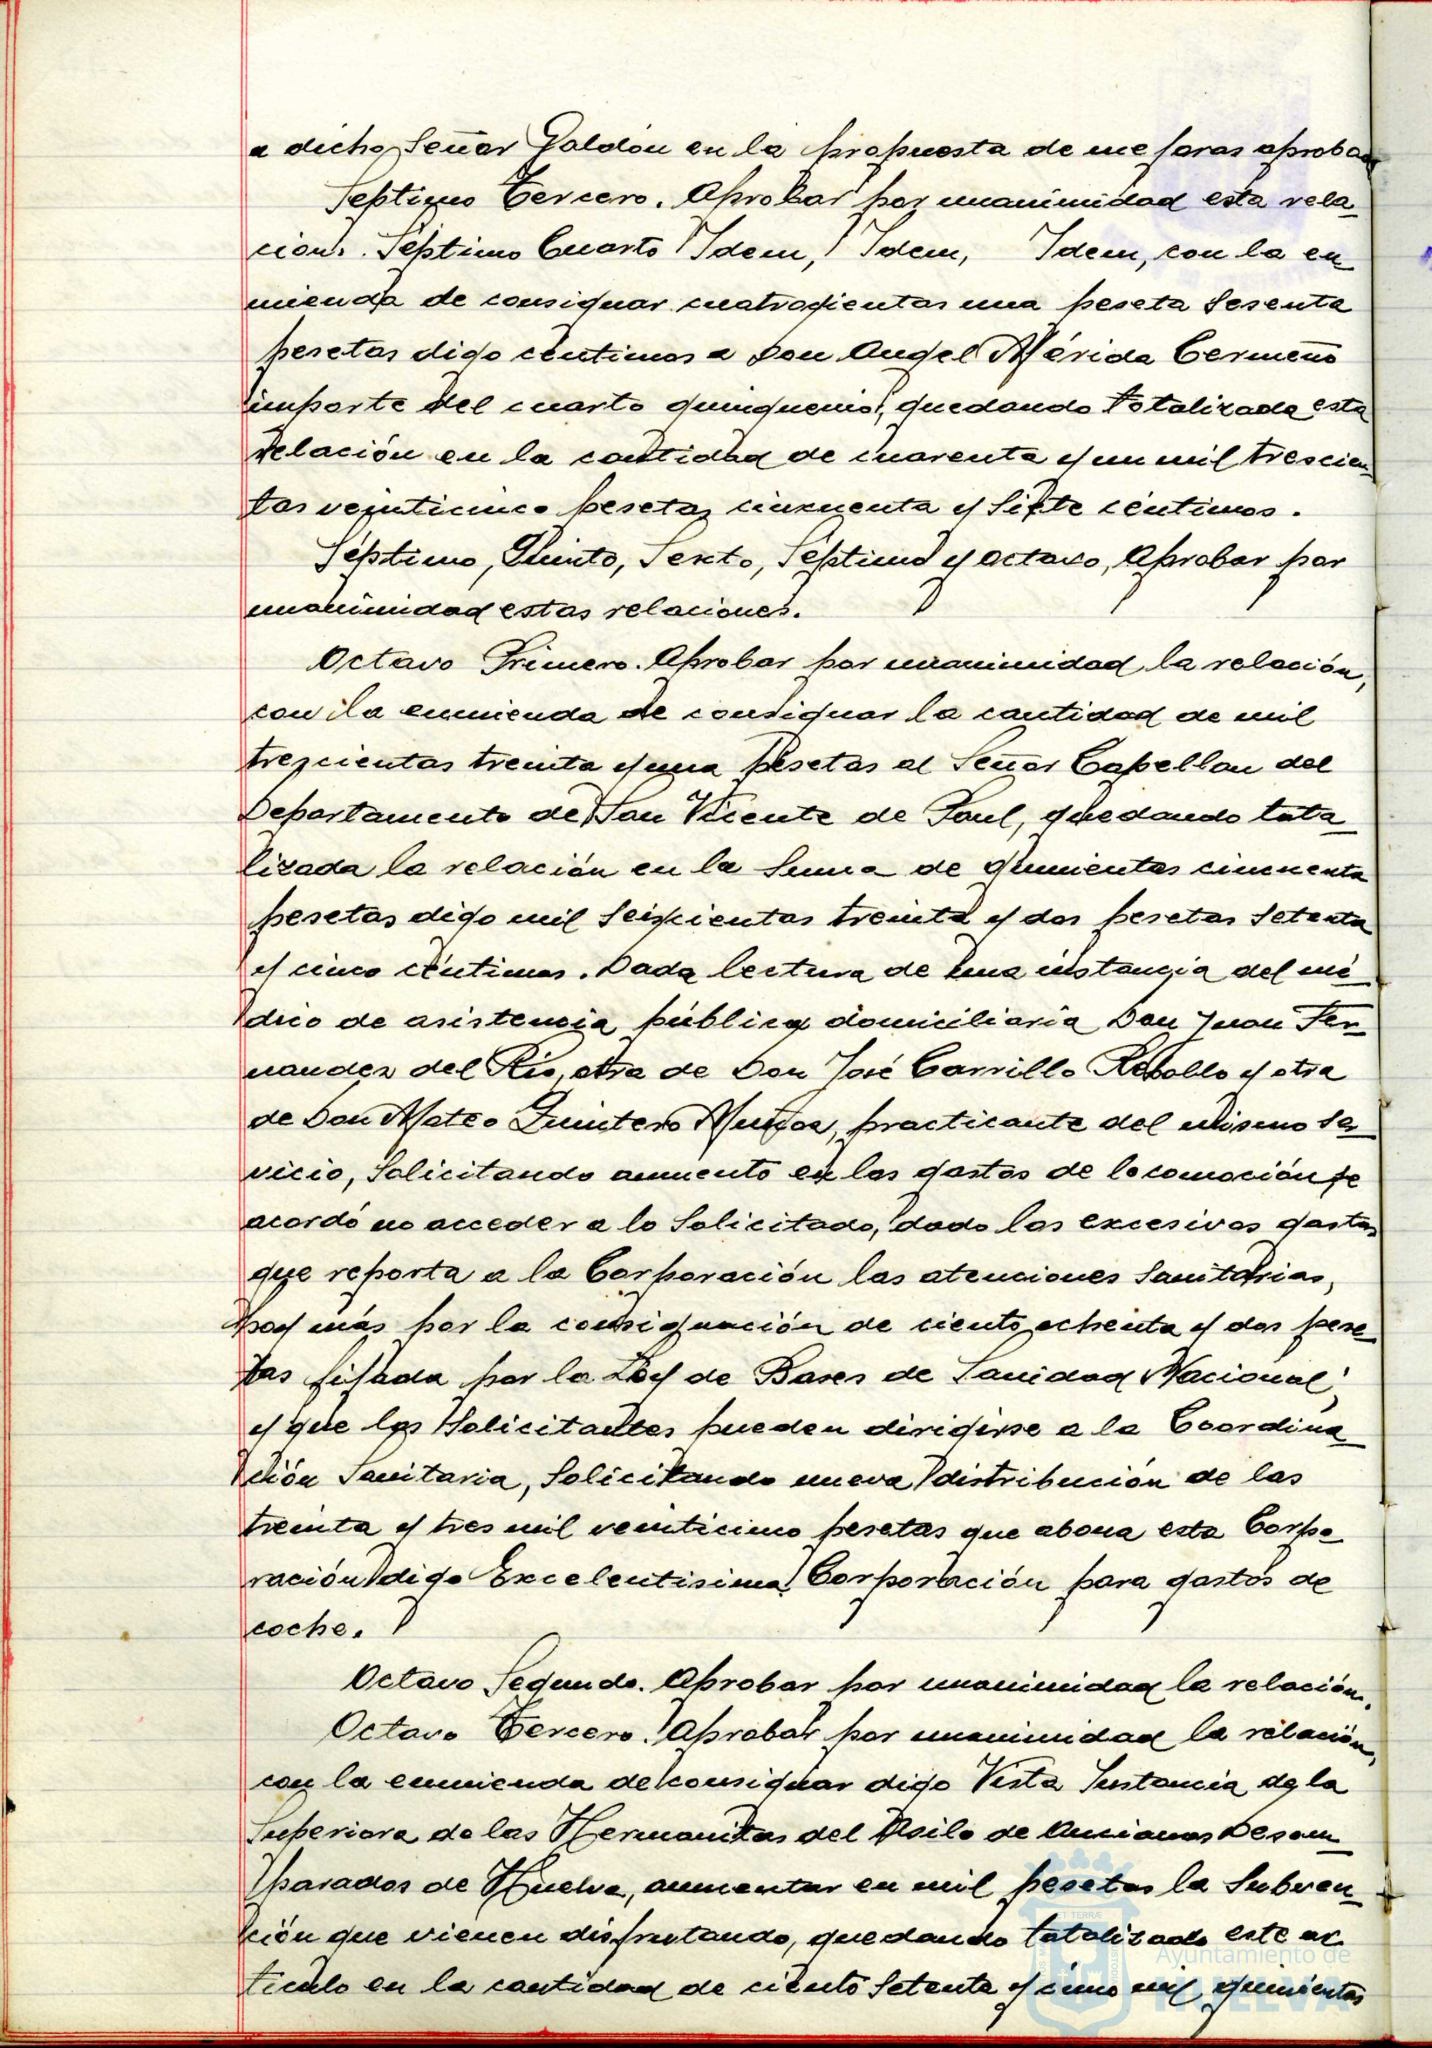 a dicho Señor Galdón en la propuesta de mejoras aprobada
Septimo Tercero. Aprobar por unanimidad esta rela-
cion. Séptimo Cuarto Idem, Idem, Idem, con la en-
mienda de consignar cuatrocientas una peseta sesenta
pesetas digo céntimos a Don Angel Mérida Cermeño
importe del cuarto quinquenio, quedando totalizada esta
relación en la cantidad de cuarenta y un mil trescien-
tas veinticinco pesetas cincuenta y siete céntimos.
Séptimo, Quinto, Sexto, Séptimo y Octavo, Aprobar por
unanimidad estas relaciones.
Octavo Primero. Aprobar por unanimidad la relación,
con la enmienda de consignar la cantidad de mil
trescientas treinta y una pesetas al Señor Capellan del
Departamento de San Vicente de Paul, quedando tota-
lizada la relación en la suma de quinientas cincuenta
pesetas digo mil seiscientas treinta y dos pesetas setenta
y cinco céntimos. Dada lectura de una instancia del mé-
dico de asistencia pública domiciliaria Don Juan Fer-
nandez del Rio, otra de Don José Carrillo Rebollo y otra
de Don Mateo Quintero Muñoz, practicante del mismo ser-
vicio, solicitando aumento en los gastos de locomoción se
acordó no acceder a lo solicitado, dado los excesivos gastos
que reporta a la Corporación las atenciones sanitarias,
hoy más por la consignación de ciento ochenta y dos pese-
tas fijada por la Ley de Bases de Sanidad Nacional,
y que los solicitantes pueden dirigirse a la Coordina-
ción Sanitaria, solicitando nueva distribución de las
treinta y tres mil veinticinco pesetas que abona esta Corpo-
ración digo Excelentisima Corporación para gastos de
coche.
Octavo Segundo. Aprobar por unanimidad la relación.
Octavo Tercero. Aprobar por unanimidad la relación,
con la enmienda de consignar digo Vista Instancia de la
Superiora de las Hermanitas del Asilo de Ancianos Desam-
parados de Huelva, aumentar en mil pesetas la subven-
ción que vienen disfrutando, quedando totalizado este ar-
ticulo en la cantidad de ciento setenta y cinco mil quinientas
Ayuntamiento de
HUELVA